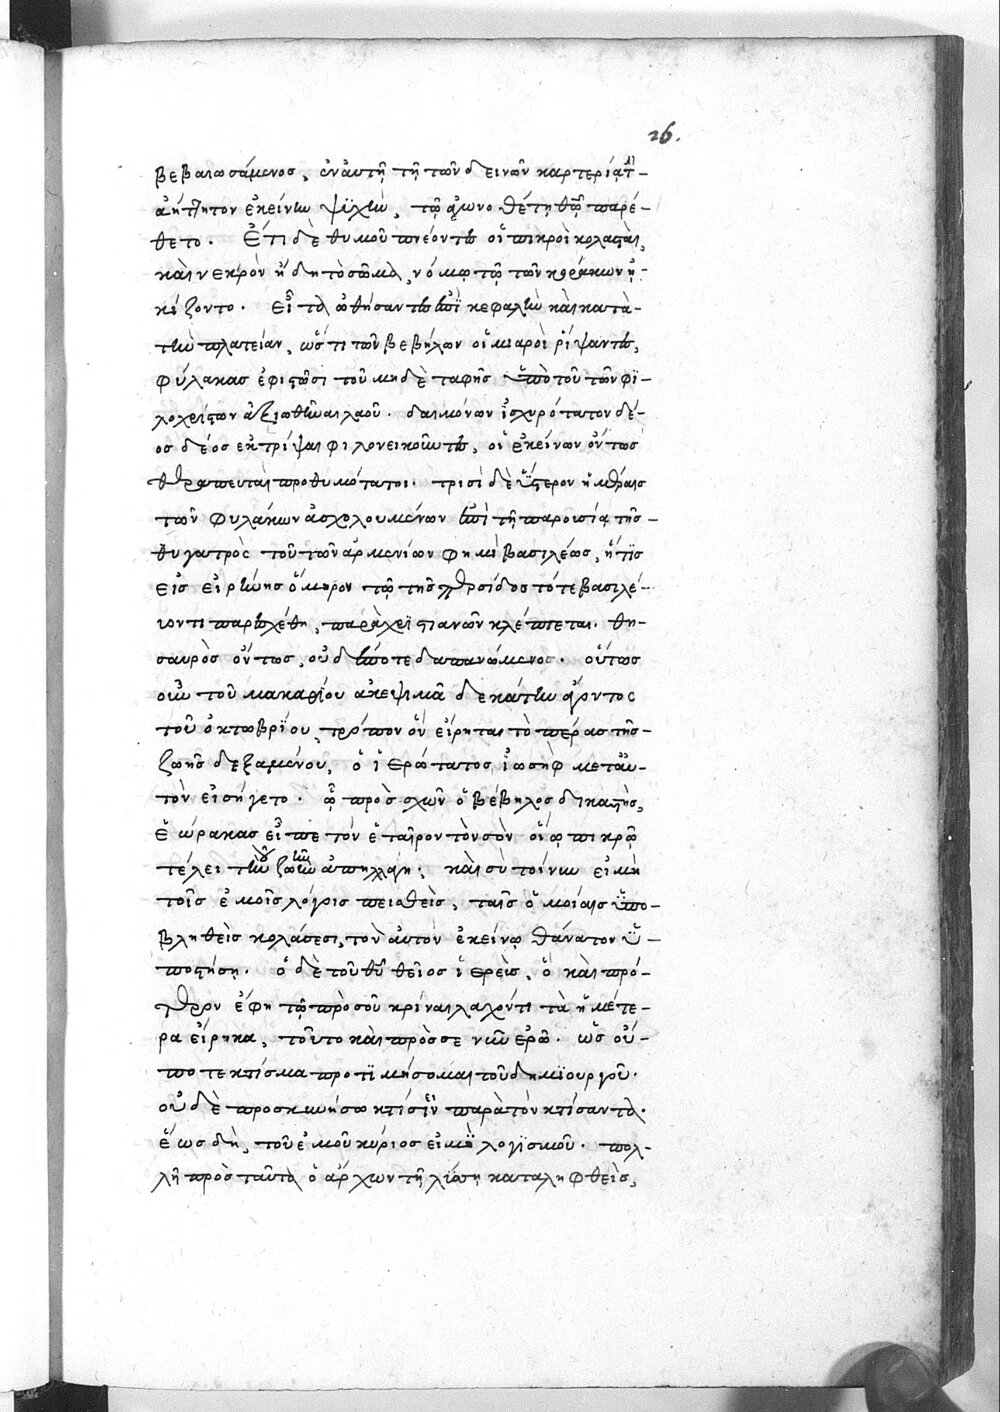 26.
βεβαιωσάμενος, ἐν αὐτῇ τῇ τῶν δεινῶν καρτερίᾳ τὴν
ἀήττητον ἐκείνην ψυχὴν, τῷ ἀγωνοθέτῃ θεῷ παρέ-
θετο. Ἔτι δὲ θυμοῦ πνέοντες οἱ πικροὶ κολασταὶ,
καὶ νεκρὸν ἤδη τὸ σῶμα, νόμῳ τῷ τῶν κοράκων ᾐ-
κίζοντο. εἶτα ὠθήσαντες ἐπὶ κεφαλὴν καὶ κατὰ
τὴν πλατείαν, ὥς τι τῶν βεβήλων οἱ μιαροὶ ῥίψαντες,
φύλακας ἐφιστῶσι τοῦ μηδὲ ταφῆς ὑπὸ τοῦ τῶν φι-
λοχρίστων ἀξιωθῆναι λαοῦ. δαιμόνων ἰσχυρότατον δέ-
ος δέος ἐκτρίψαι φιλονεικοῦντες, οἱ ἐκείνων ὄντως
θεραπευταὶ προθυμότατοι. τρισὶ δὲ ὕστερον ἡμέραις
τῶν φυλάκων ἀσχολουμένων ἐπὶ τῇ παρουσίᾳ τῆς
θυγατρὸς τοῦ τῶν ἀρμενίων φημὶ βασιλέως, ἥτις
εἰς εἰρήνης ὅμηρον τῷ τῆς περσίδος τότε βασιλεύ-
οντι παρεσχέθη, παρὰ χριστιανῶν κλέπτεται. θη-
σαυρὸς ὄντως, οὐδέποτε δαπανώμενος. οὕτως
οὖν τοῦ μακαρίου ἀκεψιμᾶ δεκάτην ἄγοντος
τοῦ ὀκτωβρίου, τρόπον ὃν εἴρηται τὸ πέρας τῆς
ζωῆς δεξαμένου, ὁ ἱερώτατος ἰωσὴφ μετ' αὐ-
τὸν εἰσήγετο. ᾧ προσσχὼν ὁ βέβηλος δικαστὴς,
ἑώρακας εἶπε τὸν ἑταῖρον τὸν σὸν οἵῳ πικρῷ
τέλει τοῦ ζῆν ἀπηλλάγη. καὶ σὺ τοίνυν εἰ μὴ
τοῖς ἐμοῖς λόγοις πεισθεὶς, ταῖς ὁμοίαις ὑπο-
βληθεὶς κολάσεσι, τὸν αὐτὸν ἐκείνῳ θάνατον ὑ-
ποστήσῃ. ὁ δὲ τοῦ θεοῦ θεῖος ἱερεὺς, ὃ καὶ πρό-
τερον ἔφη τῷ πρὸ σοῦ κρίναι λαχόντι τὰ ἡμέτε-
ρα εἴρηκα, τοῦτο καὶ πρὸς σε νῦν ἐρῶ. ὡς οὔ-
ποτε κτίσμα προτιμήσομαι τοῦ δημιουργοῦ.
οὐδὲ προσκυνήσω κτίσιν παρὰ τὸν κτίσαντα.
ἕως δὴ, τοῦ ἐμοῦ κύριος εἰμὶ λογισμοῦ. πολ-
λῇ πρὸς ταῦτα ὁ ἄρχων τῇ λύπῃ καταληφθεὶς,